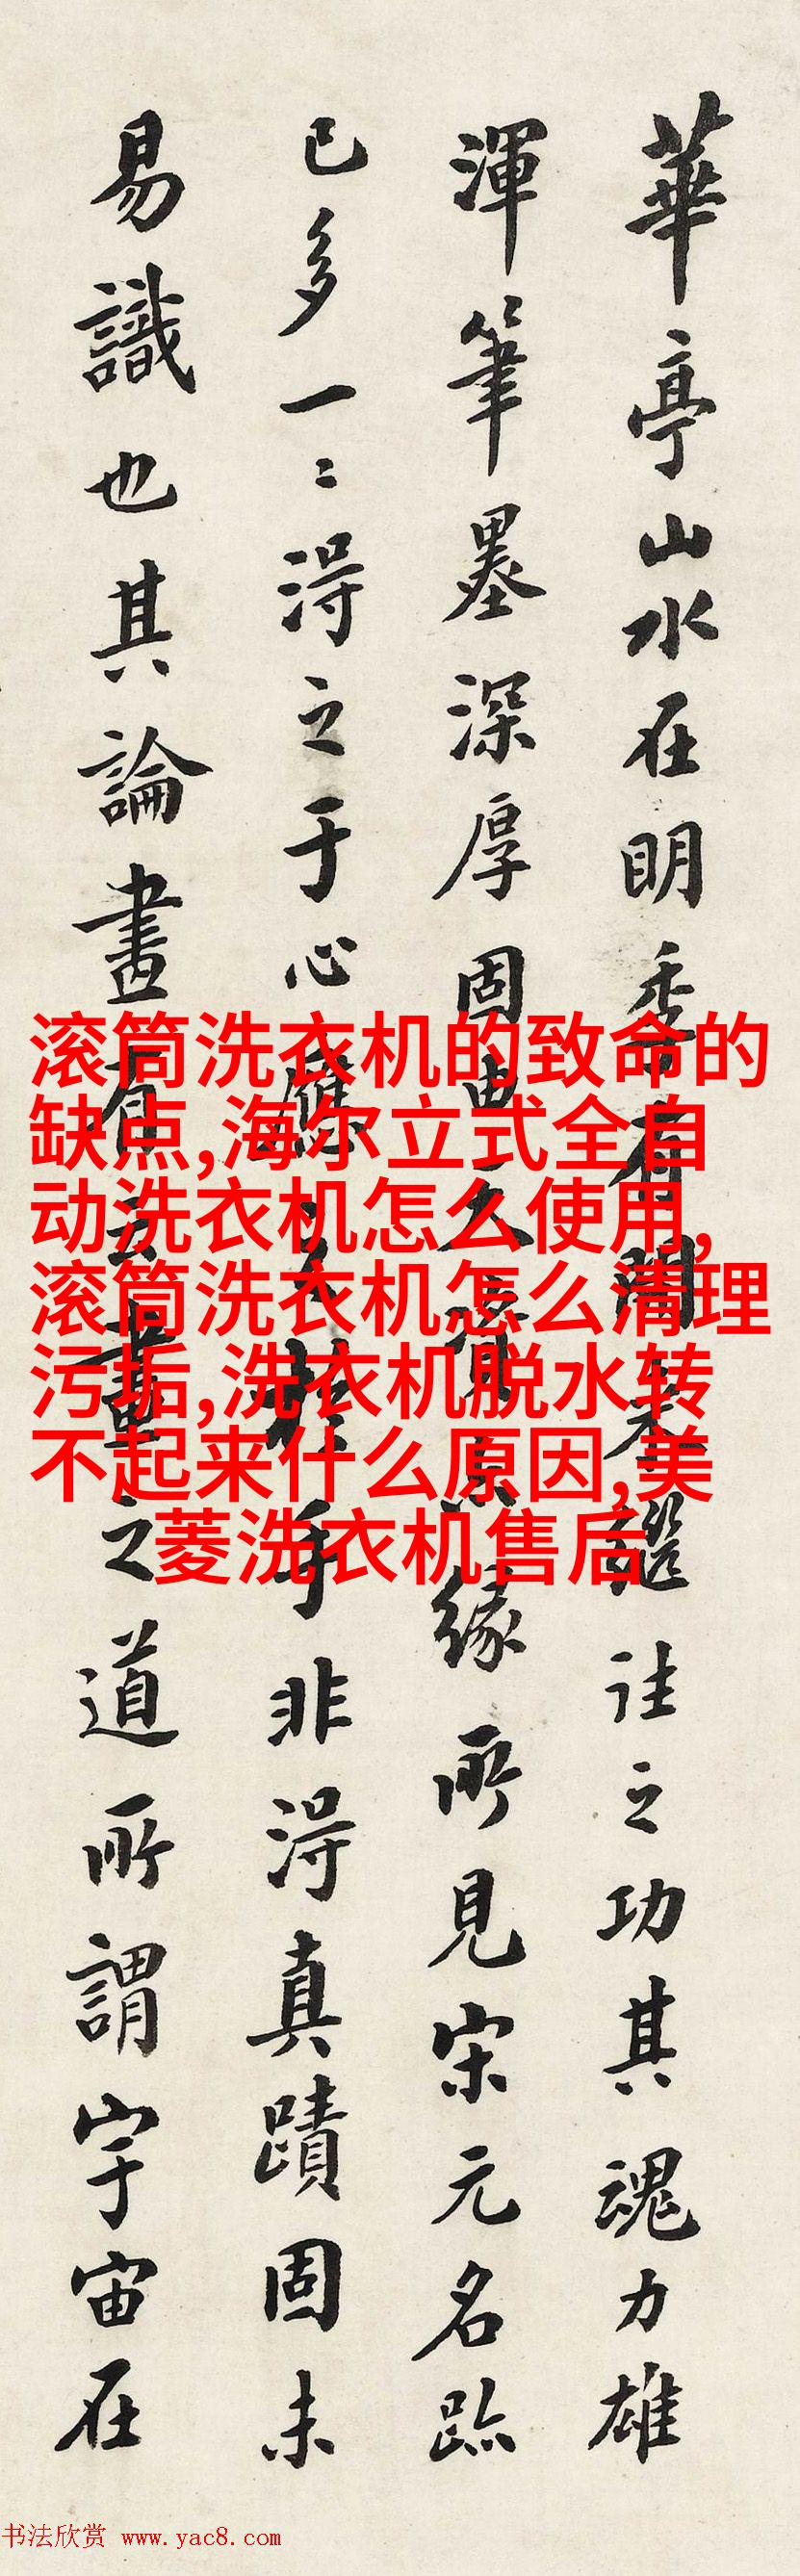 華亭山水在明季有開来繼往之功其魂力雄
渾筆墨深厚固由天資亦緣所見宋元名跡
已多一〻得之于心應之於手非得真蹟固未
易識也其論畫有云畫之道所謂宇宙在
滚筒洗衣机的致命的
缺点,海尔立式全自
动洗衣机怎么使用,
滚筒洗衣机怎么清理
污垢,洗衣机脱水转
不起来什么原因,美
菱洗衣机售后
书法欣赏 www.yac8.com